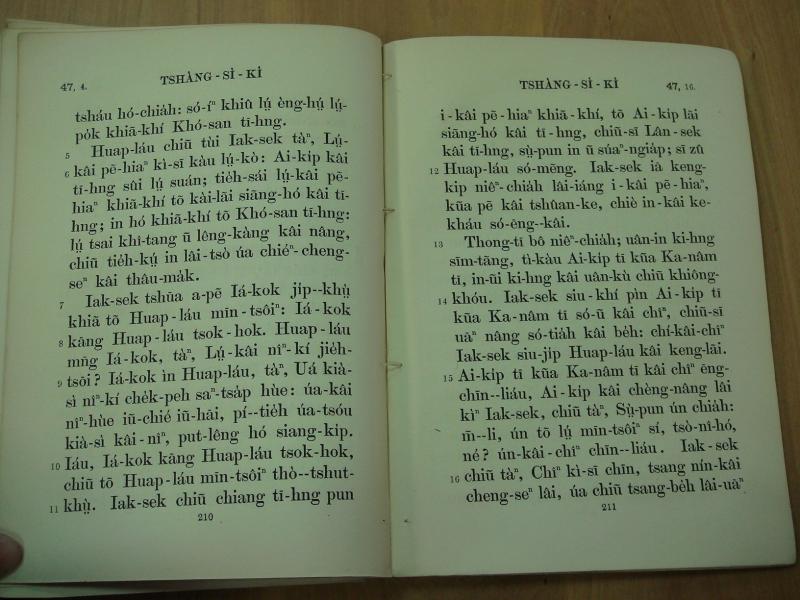 47, 4.
TSHÀNG - SĪ - KÌ
tsháu hó-chiàh: só-íⁿ khiû lṳ́ èng-hṳ́ lṳ́-
po̍k khiā-khí Khó-san tī-hng.
5 Huap-láu chiū tùi Iak-sek tàⁿ, Lṳ́-
kâi pē-hiaⁿ kì-sī kàu lṳ́-kò:
6 Ai-ki̍p kâi
tī-hng sûi lṳ́ suán; tie̍h-sái lṳ́-kâi pē-
hiaⁿ khiā-khí tō kài-lāi siāng-hó kâi tī-
hng; in hó khiā-khí tō Khó-san tī-hng:
lṳ́ tsai khî-tang ŭ lêng-kàng kâi nâng,
chiū tie̍h-kṳ́ in lâi-tsò úa chiéⁿ-cheng-
seⁿ kâi thâu-ma̍k.
7 Iak-sek tshūa a-pē Iá-kok ji̍p--khṳ̀
khiā tō Huap-láu mīn-tsôiⁿ: Iá-kok
kāng Huap-láu tsok-hok.
8 Huap-láu
mn̄g Iá-kok, tàⁿ, Lṳ́-kâi nîⁿ-kí jie̍h-
tsōi?
9 Iá-kok ìn Huap-láu, tàⁿ, Uá kià-
sì nîⁿ-kí che̍k-peh saⁿ-tsa̍p hùe: úa-kâi
nîⁿ-hùe iŭ-chié iŭ-hāi, pí--tie̍h úa-tsóu
kià-sì kâi-nîⁿ, put-lêng hó siang-ki̍p.
10 Iáu, Iá-kok kāng Huap-láu tsok-hok,
chiū tō Huap-láu mīn-tsôiⁿ thò--tshut-
11 khṳ̀. Iak-sek chiū chiang tī-hng pun
210
TSHÀNG - SĪ - KÌ
47, 16.
i-kâi pē-hiaⁿ khiā-khí, tō Ai-ki̍p lāi
siāng-hó kâi tī-hng, chiū-sī Lân-sek
kâi tī-hng, sṳ̀-pun in ŭ súaⁿ-ngia̍p; sī zû
12 Huap-láu só-mēng. Iak-sek iā keng-
ki̍p niêⁿ-chia̍h lâi-iáng i-kâi pē-hiaⁿ,
kūa pē kâi tshûan-ke, chiè in-kâi ke-
kháu só-ēng--kâi.
13 Thong-tī bô niêⁿ-chia̍h; uân-in ki-hng
sīm-tāng, tì-kàu Ai-ki̍p tī kūa Ka-nâm
tī, in-ūi ki-hng kâi uân-kù chiū khiông-
14 khóu. Iak-sek siu-khí pìn Ai-ki̍p tī
kūa Ka-nâm tī só-ŭ kâi chîⁿ, chiū-sī
uāⁿ nâng só-tia̍h kâi be̍h: chí-kâi-chîⁿ
Iak-sek siu-ji̍p Huap-láu kâi keng-lāi.
15 Ai-ki̍p tī kūa Ka-nâm tī kâi chîⁿ ēng-
chīn--liáu, Ai-ki̍p kâi chèng-nâng lâi
kìⁿ Iak-sek, chiū tàⁿ, Sṳ̀-pun ún chia̍h:
m̄--li, ún tō lṳ́ mīn-tsôiⁿ sí, tsò-nî-hó,
né? ún-kâi-chîⁿ chīn--liáu. Iak-sek
16 chiū tàⁿ, Chîⁿ kì-sī chīn, tsang nín-kâi
cheng-seⁿ lâi, úa chiū tsang-be̍h lâi-uāⁿ
211